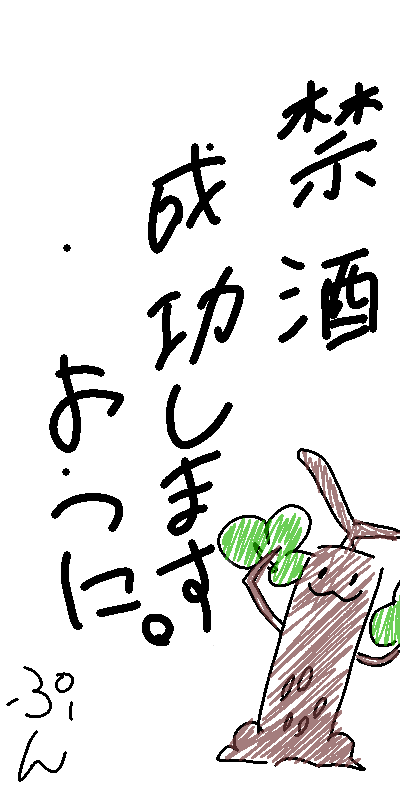 禁酒
成功します
おうに。
ぷん